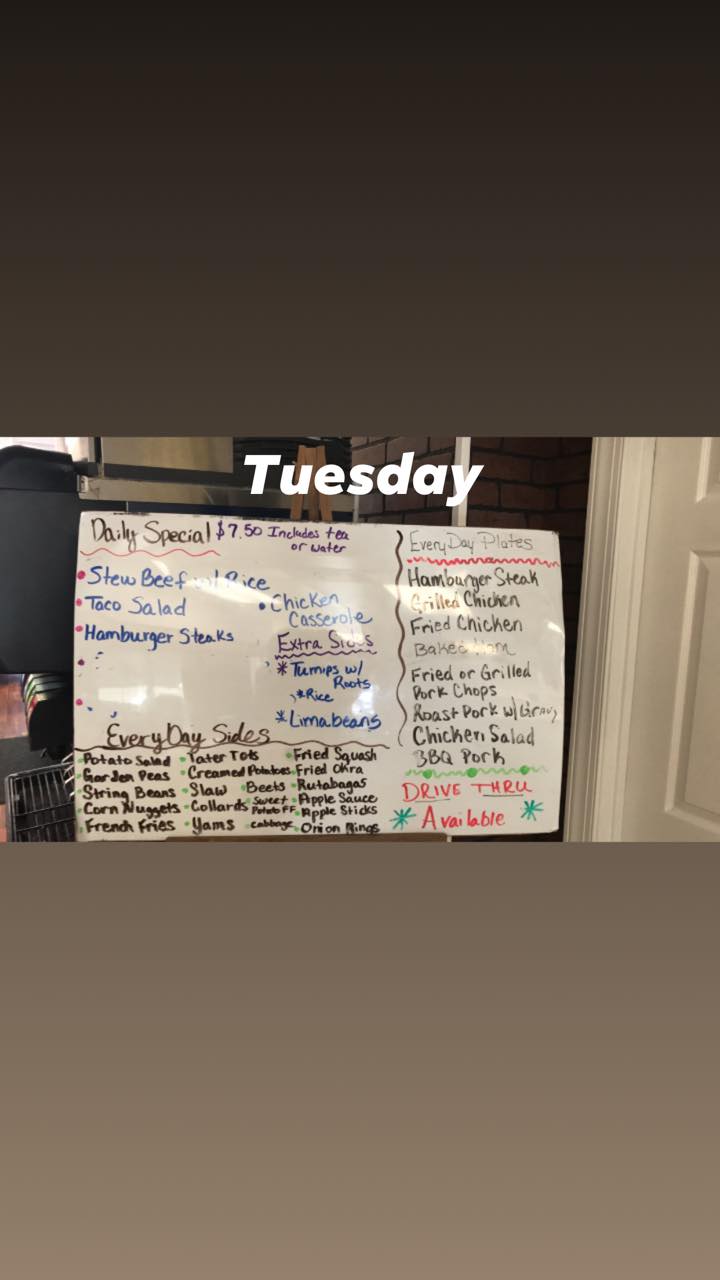 Tuesday
Daily Special $7.50 Includes tea
or water
Stew Beef w/ Rice
Taco Salad
Hamburger Steaks
Chicken
Casserole
Extra Sides
*Turnips w/
Roots
*Rice
*Limabeans
EveryDay Sides
Potato Salad
Garden Peas
String Beans
Corn Nuggets
French Fries
Tater Tots
Creamed Potatoes
Slaw
Collards
Yams
Beets
Sweet
Potato FF
cabbage
Fried Squash
Fried Okra
Rutabagas
Apple Sauce
Apple Sticks
Onion Rings
EveryDay Plates
Hamburger Steak
Grilled Chicken
Fried Chicken
Baked Ham
Fried or Grilled
Pork Chops
Roast Pork w/Gravy
Chicken Salad
BBQ Pork
DRIVE THRU
* Available *